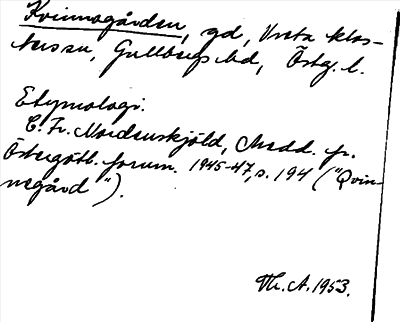 Kvinnogården, gd, Vreta klos-
ters sn, Gullbergs hd, Östg. l.
Etymologi.
C. Fr. Nordenskjöld, Medd. fr.
Östergötl. fornm. 1945-47, s. 194 ("Qvin-
negård").
Th. A. 1953.